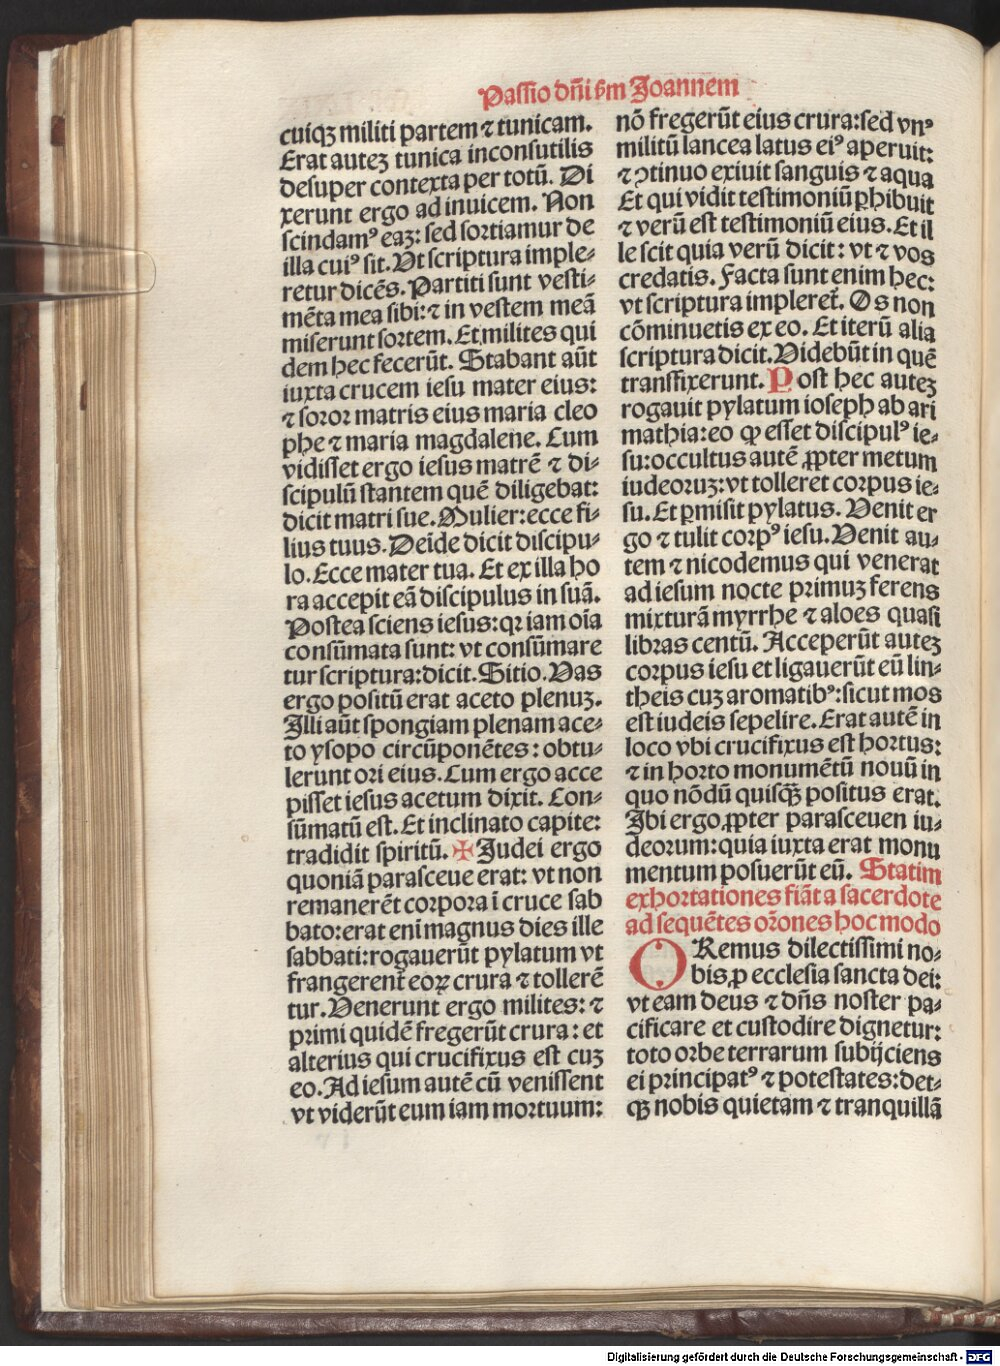 Passio dñi ẜm Joannem
cuiqꝫ militi partem ⁊ tunicam.
Erat auteꝫ tunica inconsutilis
desuper contexta per totū. Di
xerunt ergo ad inuicem. Non
scindamꝰ eaꝫ: sed sortiamur de
illa cuiꝰ sit. Vt scriptura imple⸗
retur dicēs. Partiti sunt vesti⸗
mēta mea sibi: ⁊ in vestem meā
miserunt sortem. Et milites qui
dem hec fecerūt. Stabant aūt
iuxta crucem iesu mater eius:
⁊ soror matris eius maria cleo
phe ⁊ maria magdalene. Cum
vidisset ergo iesus matrē ⁊ di⸗
scipulū stantem quē diligebat:
dicit matri sue. Mulier: ecce fi⸗
lius tuus. Deīde dicit discipu⸗
lo. Ecce mater tua. Et ex illa ho
ra accepit eā discipulus in suā.
Postea sciens iesus: qꝛ iam oīa
consūmata sunt: vt consūmare
tur scriptura: dicit. Sitio. Vas
ergo positū erat aceto plenuꝫ.
Illi aūt spongiam plenam ace⸗
to ysopo circūponētes: obtu⸗
lerunt ori eius. Cum ergo acce
pisset iesus acetum dixit. Con⸗
sūmatū est. Et inclinato capite:
tradidit spiritū. ✠ Judei ergo
quoniā parasceue erat: vt non
remanerēt corpora ī cruce sab
bato: erat enī magnus dies ille
sabbati: rogauerūt pylatum vt
frangerent̄ eoꝝ crura ⁊ tollerē
tur. Venerunt ergo milites: ⁊
primi quidē fregerūt crura: et
alterius qui crucifixus est cuꝫ
eo. Ad iesum autē cū venissent
vt viderūt eum iam mortuum:
nō fregerūt eius crura: sed vnꝰ
militū lancea latus eiꝰ aperuit:
⁊ ꝯtinuo exiuit sanguis ⁊ aqua
Et qui vidit testimoniū ꝑhibuit
⁊ verū est testimoniū eius. Et il
le scit quia verū dicit: vt ⁊ vos
credatis. Facta sunt enim hec:
vt scriptura impleret̄. Os non
cōminuetis ex eo. Et iterū alia
scriptura dicit. Videbūt in quē
transfixerunt. Post hec auteꝫ
rogauit pylatum ioseph ab ari
mathia: eo ꝙ esset discipulꝰ ie⸗
su: occultus autē ꝓpter metum
iudeoruꝫ: vt tolleret corpus ie⸗
su. Et ꝑmisit pylatus. Venit er
go ⁊ tulit corpꝰ iesu. Venit au⸗
tem ⁊ nicodemus qui venerat
ad iesum nocte primuꝫ ferens
mixturā myrrhe ⁊ aloes quasi
libras centū. Acceperūt auteꝫ
corpus iesu et ligauerūt eū lin⸗
theis cuꝫ aromatibꝰ: sicut mos
est iudeis sepelire. Erat autē in
loco vbi crucifixus est hortus:
⁊ in horto monumētū nouū in
quo nōdū quisqȝ̄ positus erat.
Ibi ergo ꝓpter parasceuen iu⸗
deorum: quia iuxta erat monu
mentum posuerūt eū. Statim
exhortationes fiāt a sacerdote
ad sequētes oꝛōnes hoc modo
ORemus dilectissimi no⸗
bis ꝓ ecclesia sancta dei:
vt eam deus ⁊ dñs noster pa⸗
cificare et custodire dignetur:
toto orbe terrarum subijciens
ei principatꝰ ⁊ potestates: det⸗
qꝫ nobis quietam ⁊ tranquillā
Digitalisierung gefördert durch die Deutsche Forschungsgemeinschaft - DFG